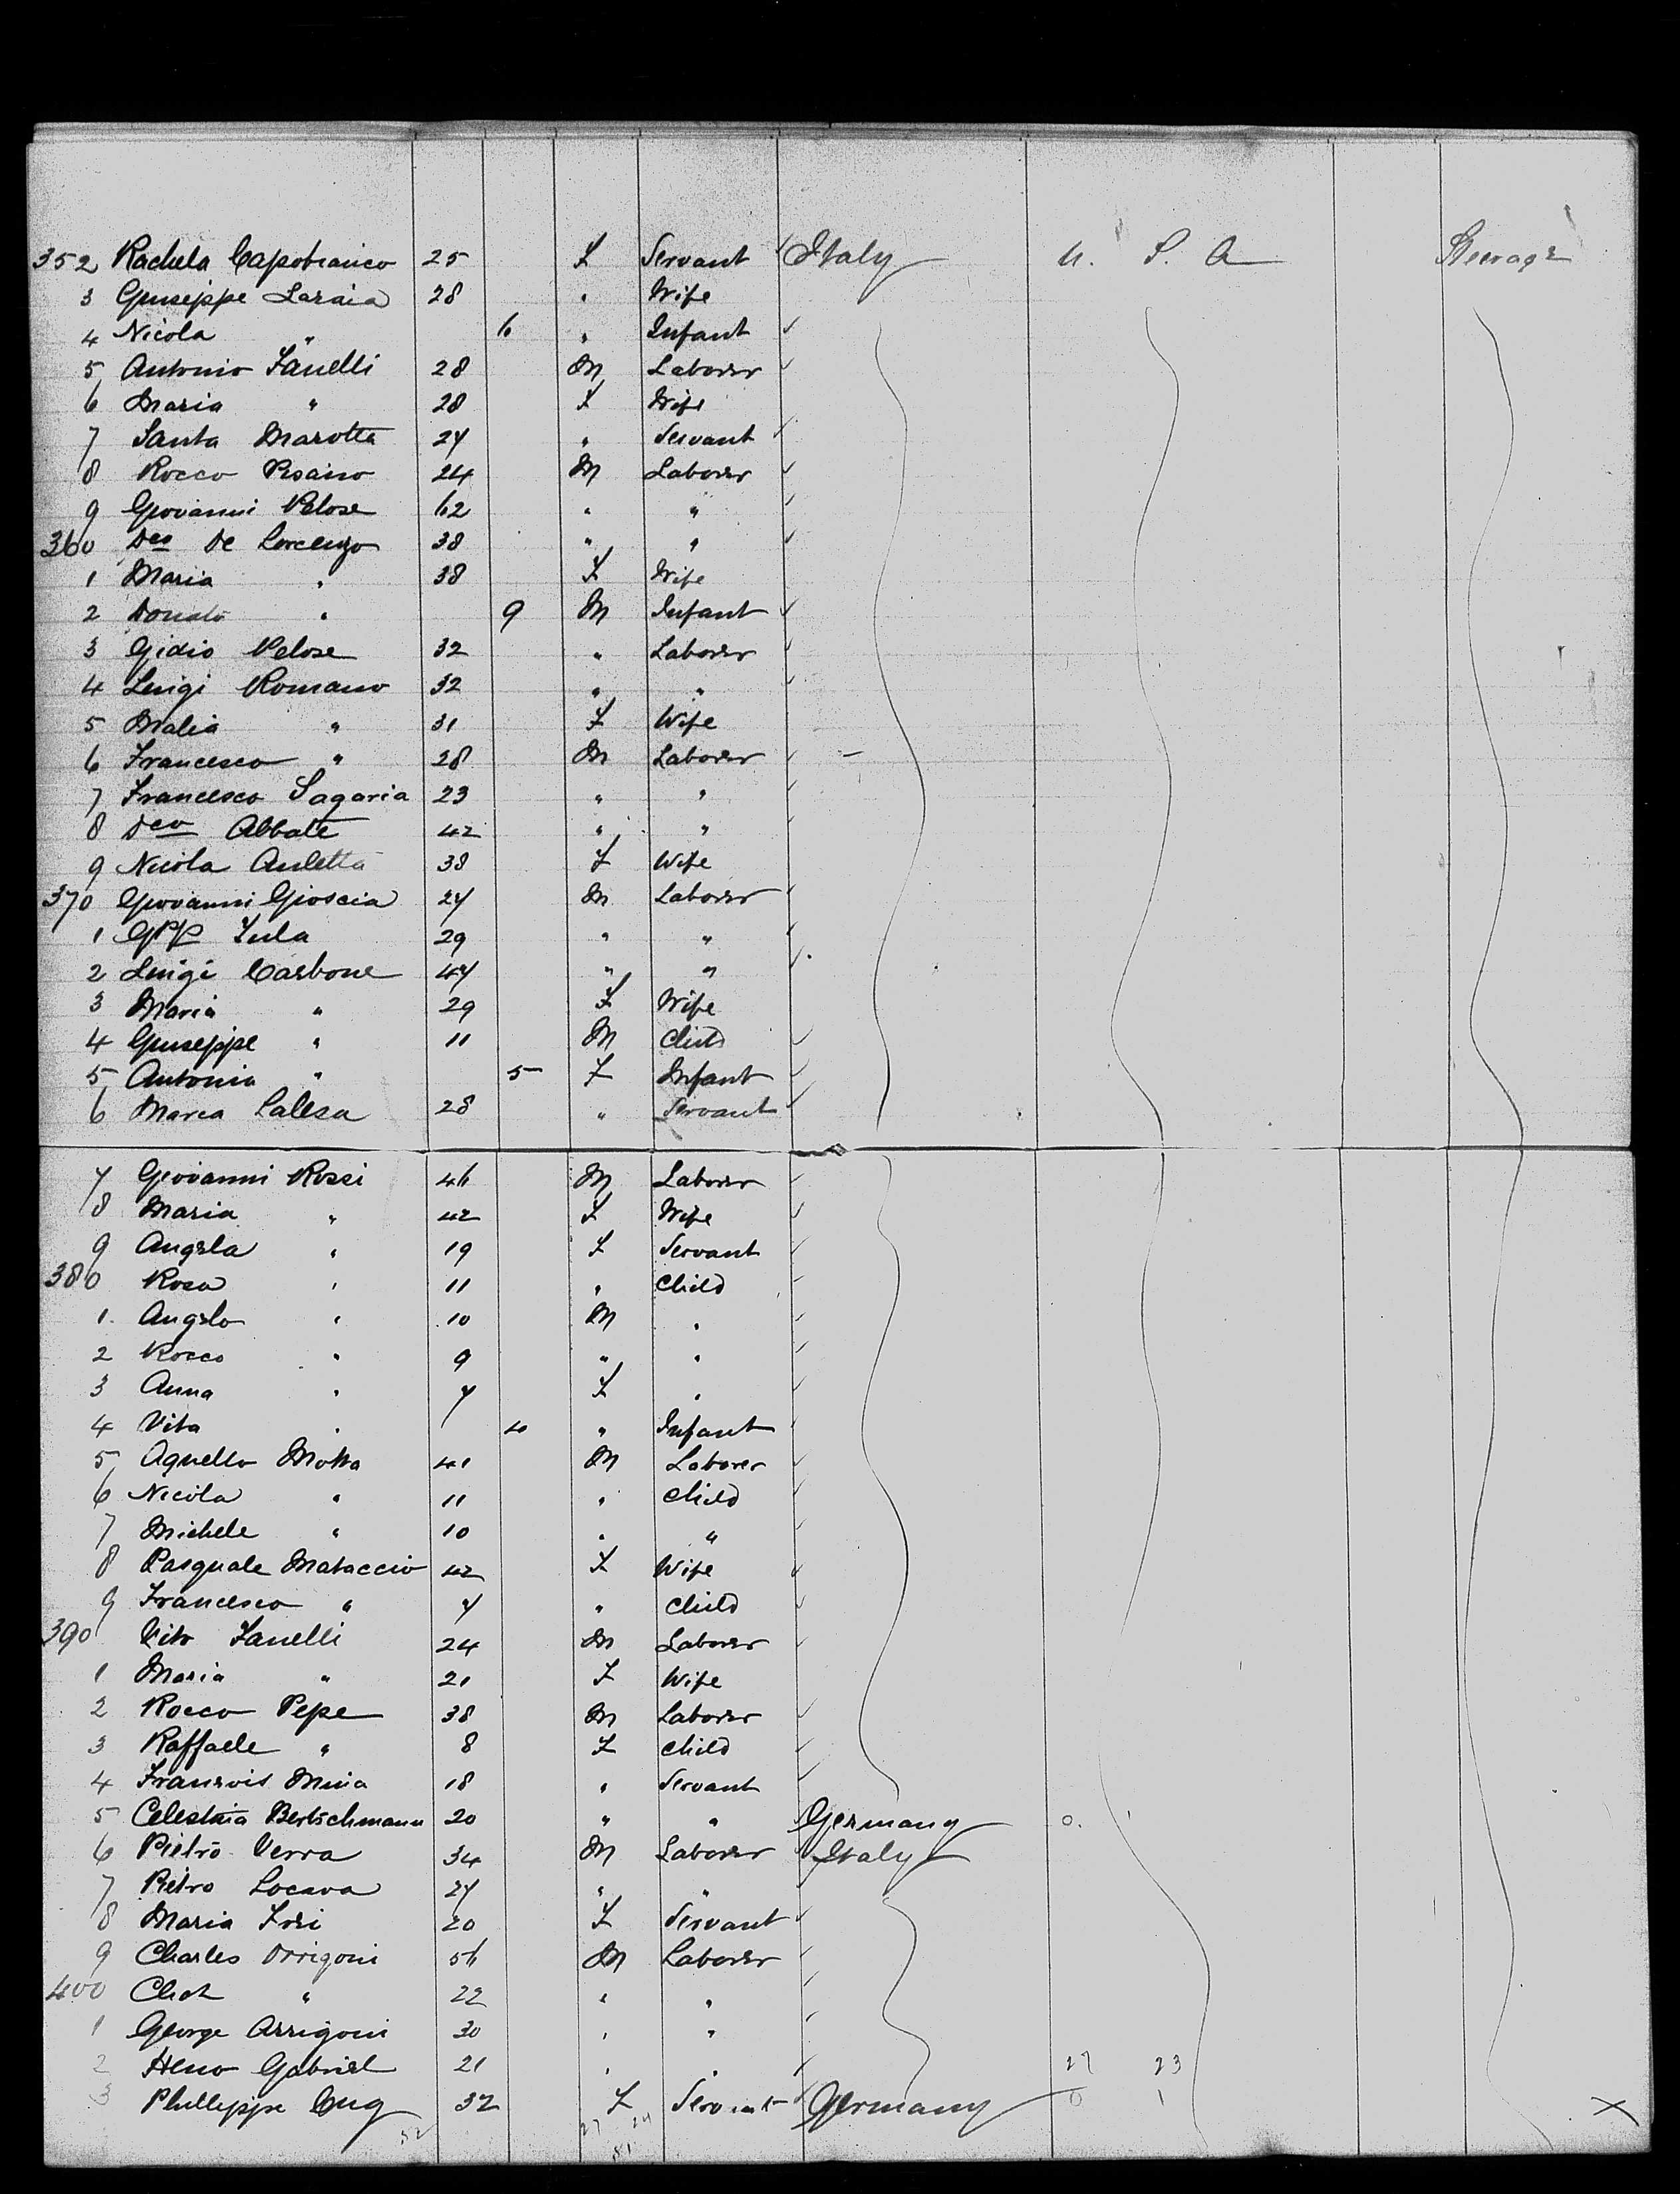 352 Rachela Capobianco 25 F Servant Italy U. S. A Steerage
3 Guiseppe Laraia 28 " Wife
4 Nicola " 6 " Infant
5 Antonio Fanelli 28 M Laborer
6 Maria " 28 F Wife
7 Santa Marotta 27 " Servant
8 Rocco Pisano 24 M Laborer
9 Giovanni Velose 62 " "
360 Dco De Lorenzo 38 " "
1 Maria " 38 F Wife
2 Donato " 9 M Infant
3 Gidio Velose 32 " Laborer
4 Luigi Romano 32 " "
5 Malia " 31 F Wife
6 Francesco " 28 M Laborer
7 Francesco Sagaria 23 " "
8 Dco Abbate 42 " "
9 Nicola Auletta 38 F Wife
370 Giovanni Gioscia 27 M Laborer
1 Gppe Fula 29 " "
2 Luigi Carbone 47 " "
3 Maria " 29 F Wife
4 Guiseppe " 11 M Child
5 Antonia " 5 F Infant
6 Maria Salesa 28 " Servant
7 Giovanni Rossi 46 M Laborer
8 Maria " 42 F Wife
9 Angela " 19 F Servant
380 Rosa " 11 " Child
1 Angelo " 10 M "
2 Rocco " 9 " "
3 Anna " 7 F "
4 Vita " 10 " Infant
5 Agnello Motta 41 M Laborer
6 Nicola " 11 " Child
7 Michele " 10 " "
8 Pasquale Mataccio 42 F Wife
9 Francesco " 7 " Child
390 Vito Fanelli 24 M Laborer
1 Maria " 21 F Wife
2 Rocco Pepe 38 M Laborer
3 Raffaele " 8 F Child
4 Franzois Mina 18 " Servant
5 Celestina Bertschmann 20 " " Germany 0.
6 Pietro Verra 34 M Laborer Italy
7 Pietro Locava 27 " "
8 Maria Fori 20 F Servant
9 Charles Orrigoni 56 M Laborer
400 " 22 " "
1 George Arrigoni 30 " "
2 Heno Gabriel 21 " " 27 23
3 Phillippe Cug 32 F Servant Germany 0 1